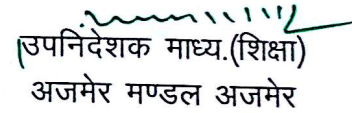 उपनिदेशक माध्य.(शिक्षा)
अजमेर मण्डल अजमेर